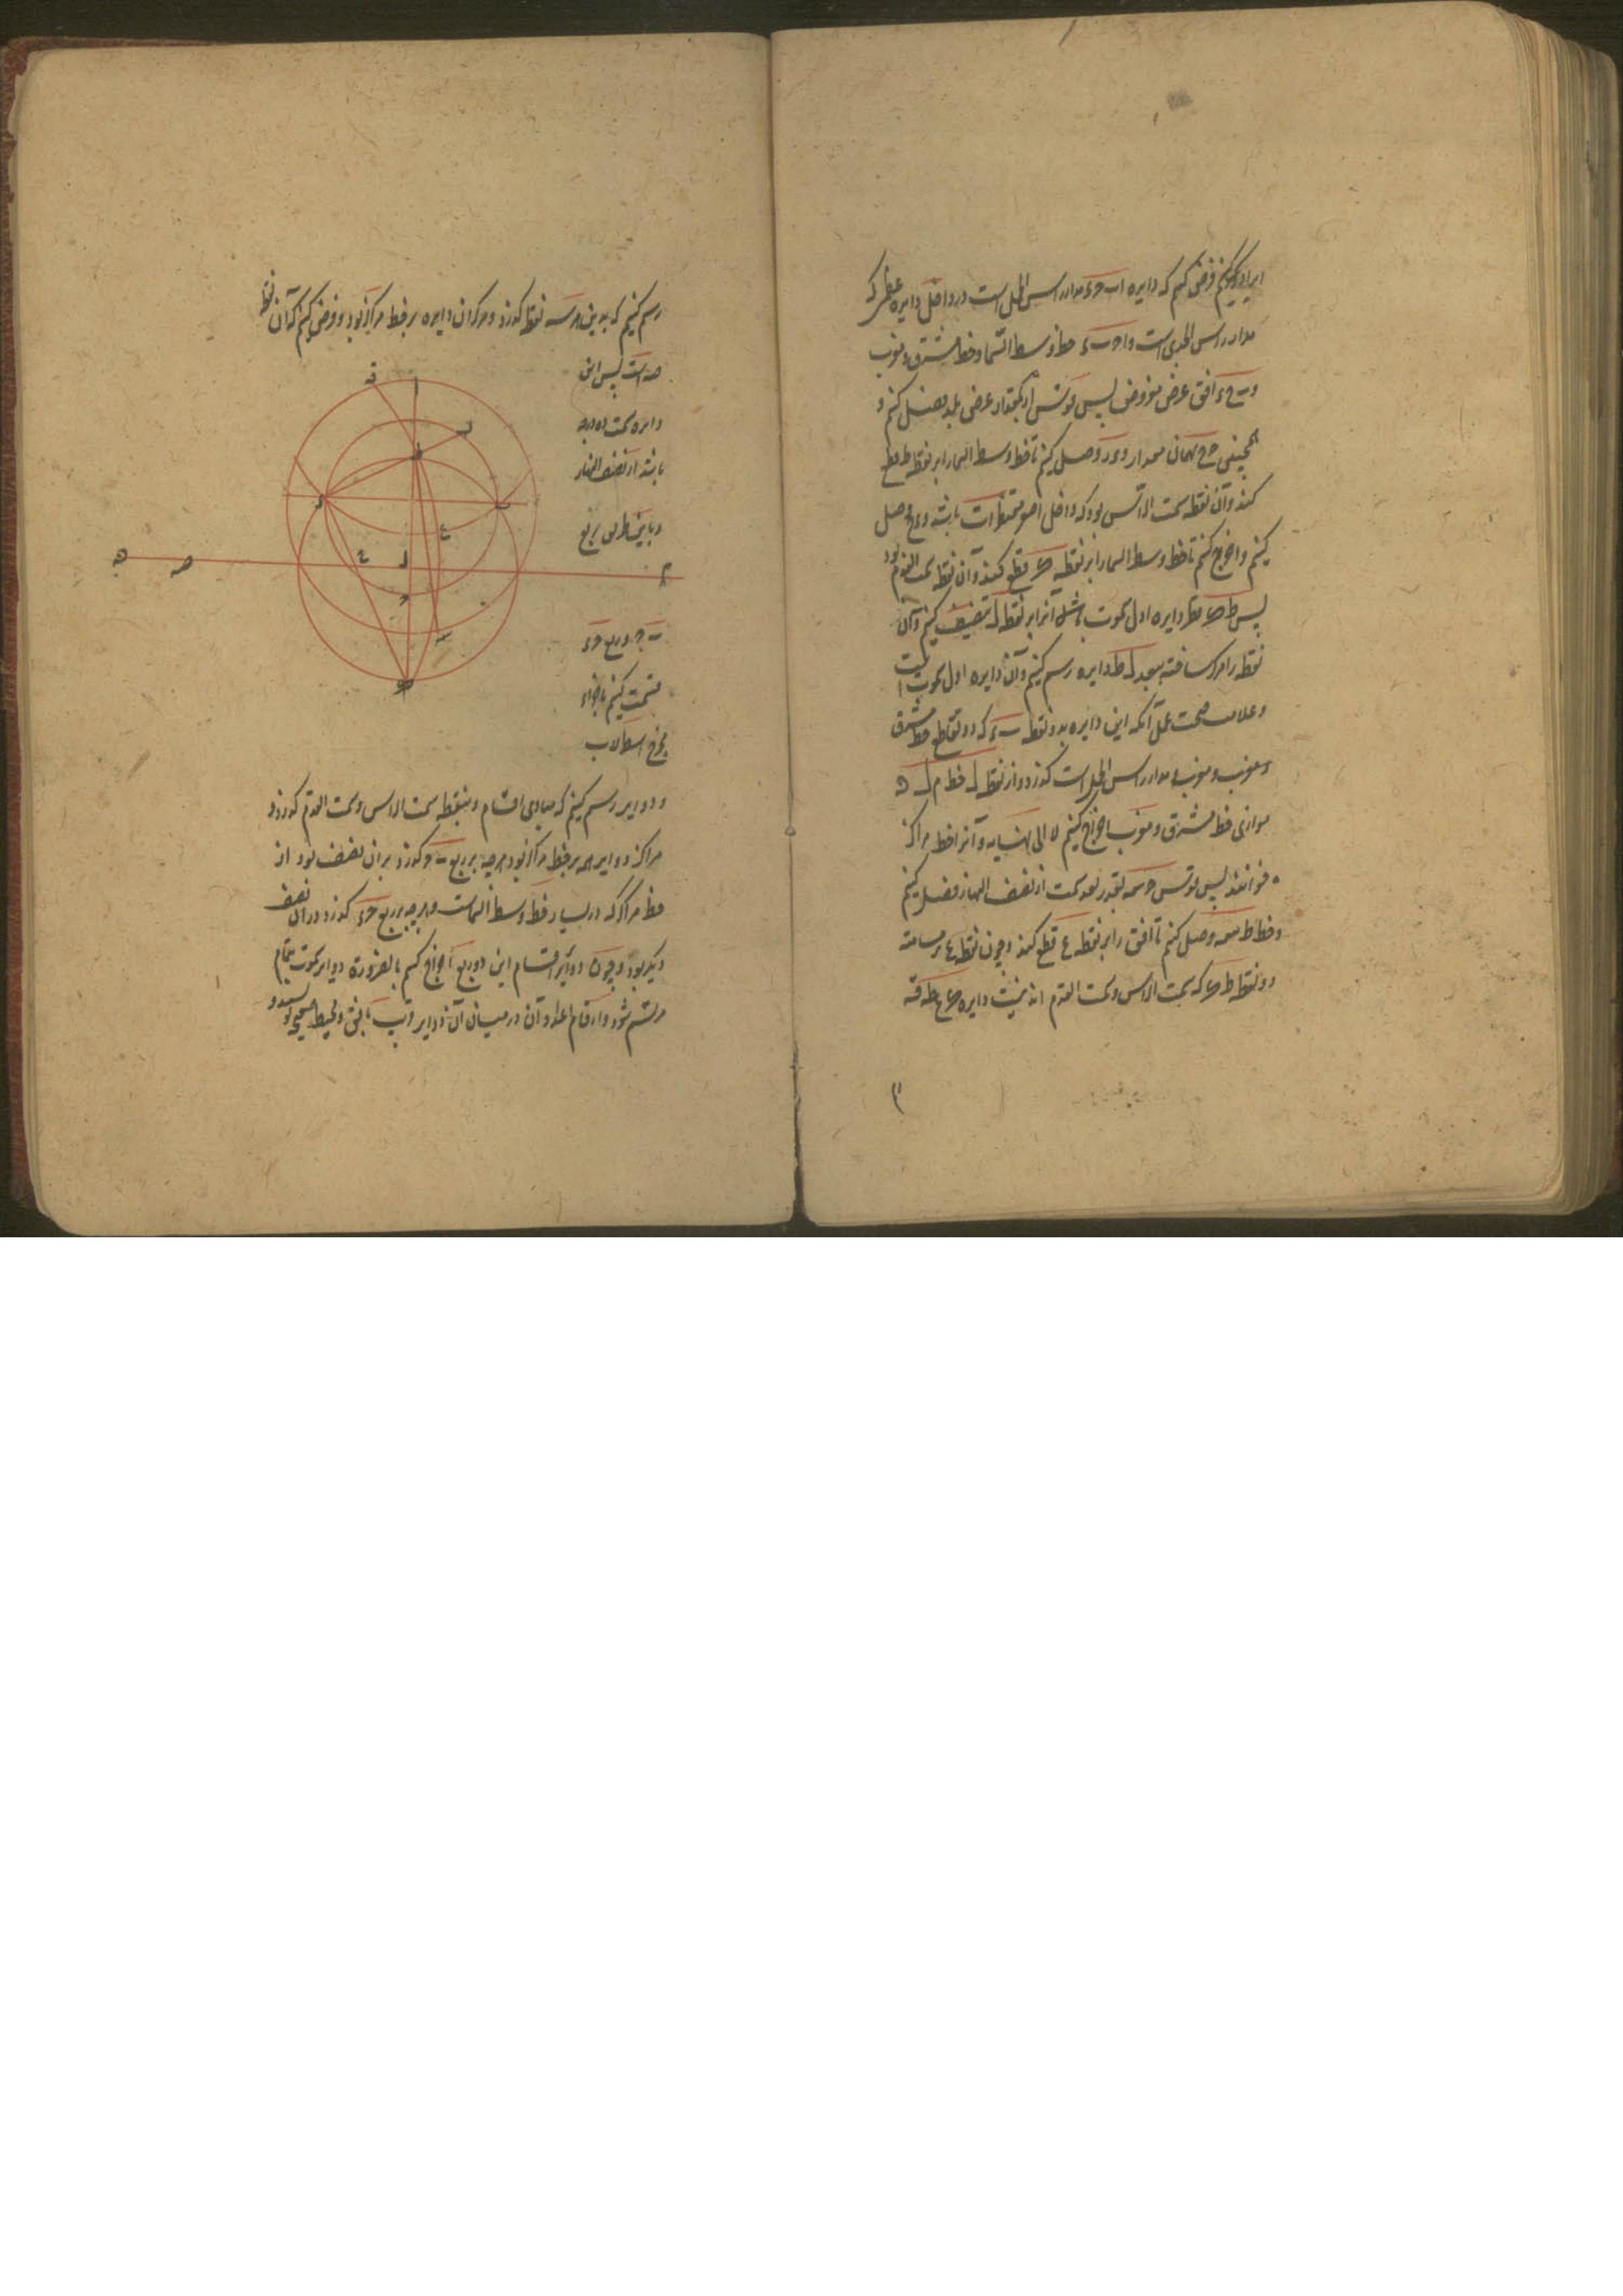 ایراد کنیم فرض کنیم که دایره ا ب ح ء مدار راس الحمل است در داخل دایره عظمی که
مدار راس الجدی است و ا ح ب ء خط وسط السما و خط مشرق و مغرب
و ب ح ء افق عرض مفروض پس قوس از بمقدار عرض بلد فصل کنیم و
همچنین ح ر بهمان مقدار و ء ر وصل کنیم تا خط وسط السما را بر نقطه ط قطع
کند و آن نقطه سمت الراس بود که داخل اصغر مقنطرات باشد و ء وصل
کنیم و اخراج کنیم تا خط وسط السما را بر نقطه ص قطع کند و آن نقطه سمت القدم بود
پس ط ص قطر دایره اول سموت باشد آنرا بر نقطه ل تنصیف کنیم و آن
نقطه را مرکز ساخته ببعد ل ط دایره رسم کنیم و آن دایره اول سموت است
و علامت صحت عمل آنکه این دایره بدو نقطه ب ء که دو تقاطع خط مشرق
و مغرب و مدار راس الحمل است گذرد و از نقطه ل خط م ل ه
موازی خط مشرق و مغرب اخراج کنیم لا الی نهایه و آنرا خط مراکز
خوانند پس قوس ح سه بقدر بعد سمت از نصف النهار فصل کنیم
و خط ط سه وصل کنیم تا افق را بر نقطه ع قطع کند و چون نقطه ع بر سامته
دو نقطه ط ص که سمت الراس و سمت القدم اند نیست دایره ص ع ط فه
رسم کنیم که بدین هر سه نقطه گذرد و مرکز آن دایره بر خط مراکز بود و فرض کنیم که آن نقطه
صه است پس این
دایره سمت ده درجه
باشد از نصف النهار
و باین طریق ربع
ب ح و ربع ح ء
قسمت کنیم باجزاء
مخرج اسطرلاب
و دوایر رسم کنیم که بمبادی اقسام و بنقطه سمت الراس و سمت القدم گذرد و
مراکز دوایر همه بر خط مراکز بود هرچه بر ربع ب ح گذرد بر آن نصف بود از
خط مراکز که در یسار خط وسط السماست و هرچه بر ربع ح ء گذرد در آن نصف
دیگر بود و چون دوایر اقسام این دو ربع اخراج کنیم بالضروره دوایر سموت بتمام
مرتسم شود و ارقام اعداد آن در میان آن دوایر قریب بافق و محیط صحیحه نویسند و